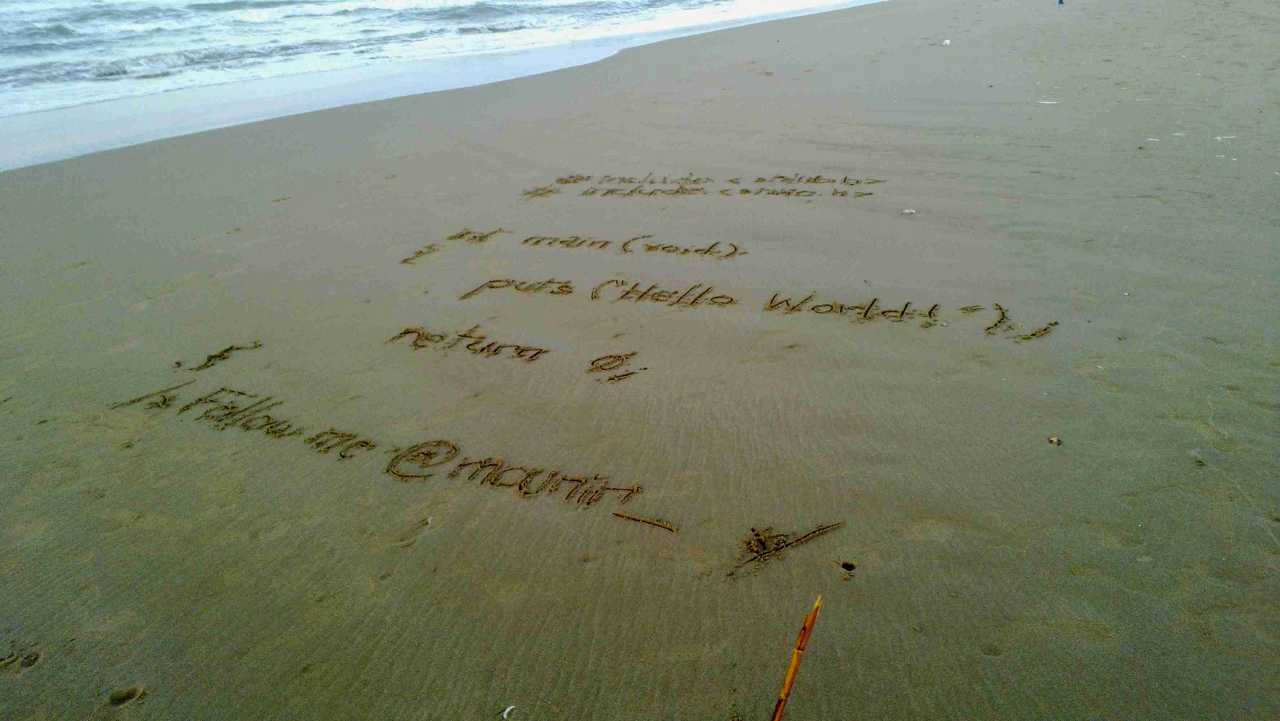 #include <stdlib.h>
#include <stdio.h>
int main (void)
{
puts ("Hello World!");
return 0;
}
/* Follow me @mounin_ */